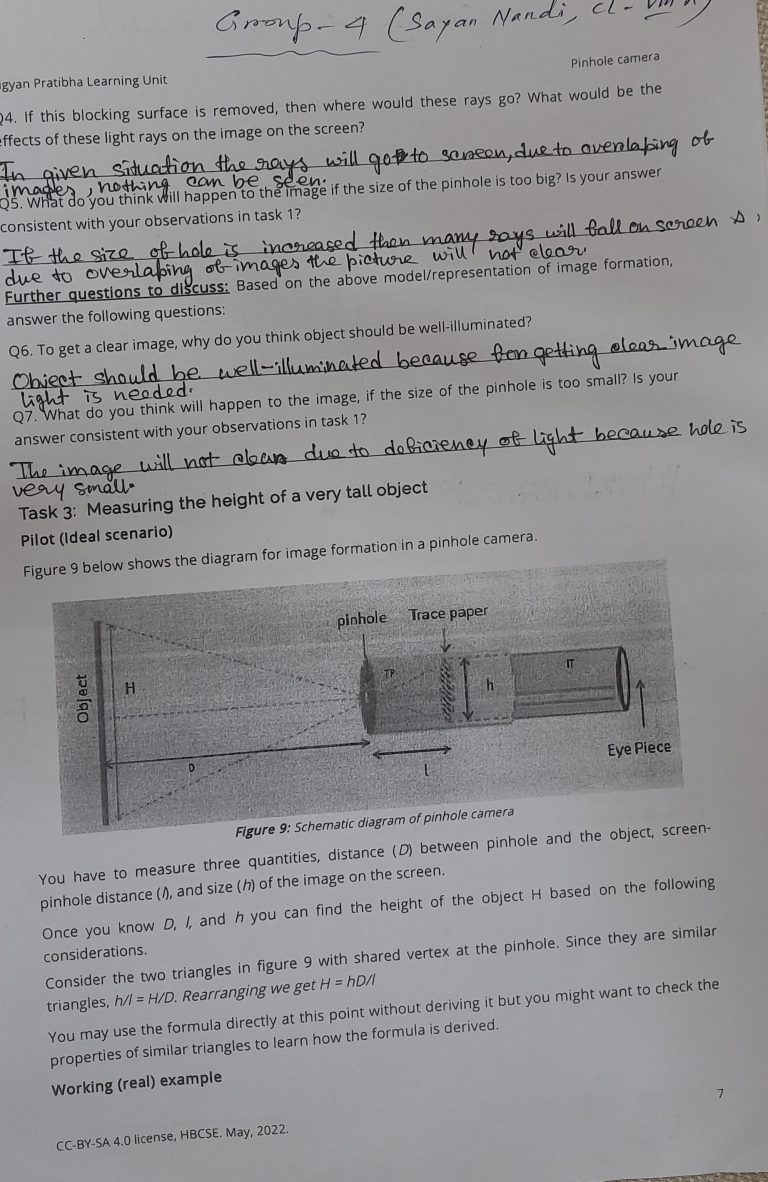 Group - 4 (Sayan Nandi, cl -
igyan Pratibha Learning Unit
Pinhole camera
Q4. If this blocking surface is removed, then where would these rays go? What would be the
effects of these light rays on the image on the screen?
In given situation the rays will go to screen, due to overlaping of
images, nothing can be seen.
Q5. What do you think will happen to the image if the size of the pinhole is too big? Is your answer
consistent with your observations in task 1?
If the size of hole is increased then many rays will fall on screen &,
due to overlaping of images the picture will not clear.
Further questions to discuss: Based on the above model/representation of image formation,
answer the following questions:
Q6. To get a clear image, why do you think object should be well-illuminated?
Object should be well-illuminated because for getting clear image
light is needed.
Q7. What do you think will happen to the image, if the size of the pinhole is too small? Is your
answer consistent with your observations in task 1?
The image will not clear due to deficiency of light because hole is
very small.
Task 3: Measuring the height of a very tall object
Pilot (Ideal scenario)
Figure 9 below shows the diagram for image formation in a pinhole camera.
pinhole Trace paper
Object
H
TP
h
IT
D
l
Eye Piece
Figure 9: Schematic diagram of pinhole camera
You have to measure three quantities, distance (D) between pinhole and the object, screen-
pinhole distance (l), and size (h) of the image on the screen.
Once you know D, l, and h you can find the height of the object H based on the following
considerations.
Consider the two triangles in figure 9 with shared vertex at the pinhole. Since they are similar
triangles, h/l = H/D. Rearranging we get H = hD/l
You may use the formula directly at this point without deriving it but you might want to check the
properties of similar triangles to learn how the formula is derived.
Working (real) example
7
CC-BY-SA 4.0 license, HBCSE. May, 2022.